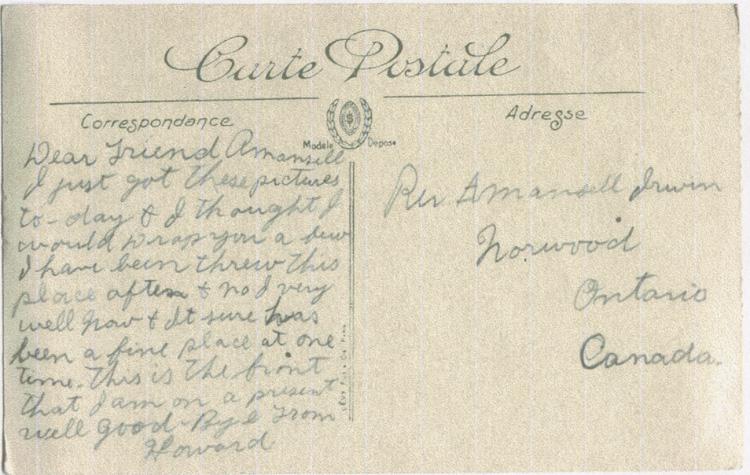 Carte Postale
Correspondance
Adresse
Modèle Déposé
Dear Friend Amansell
I just got these pictures
to-day & I thought I
would drop you a few
I have been threw this
place often & no I very
well now & It sure has
been a fine place at one
time. This is the front
that I am on a present
well Good-Bye From
Howard
Rev Amansell Irwin
Norwood
Ontario
Canada.